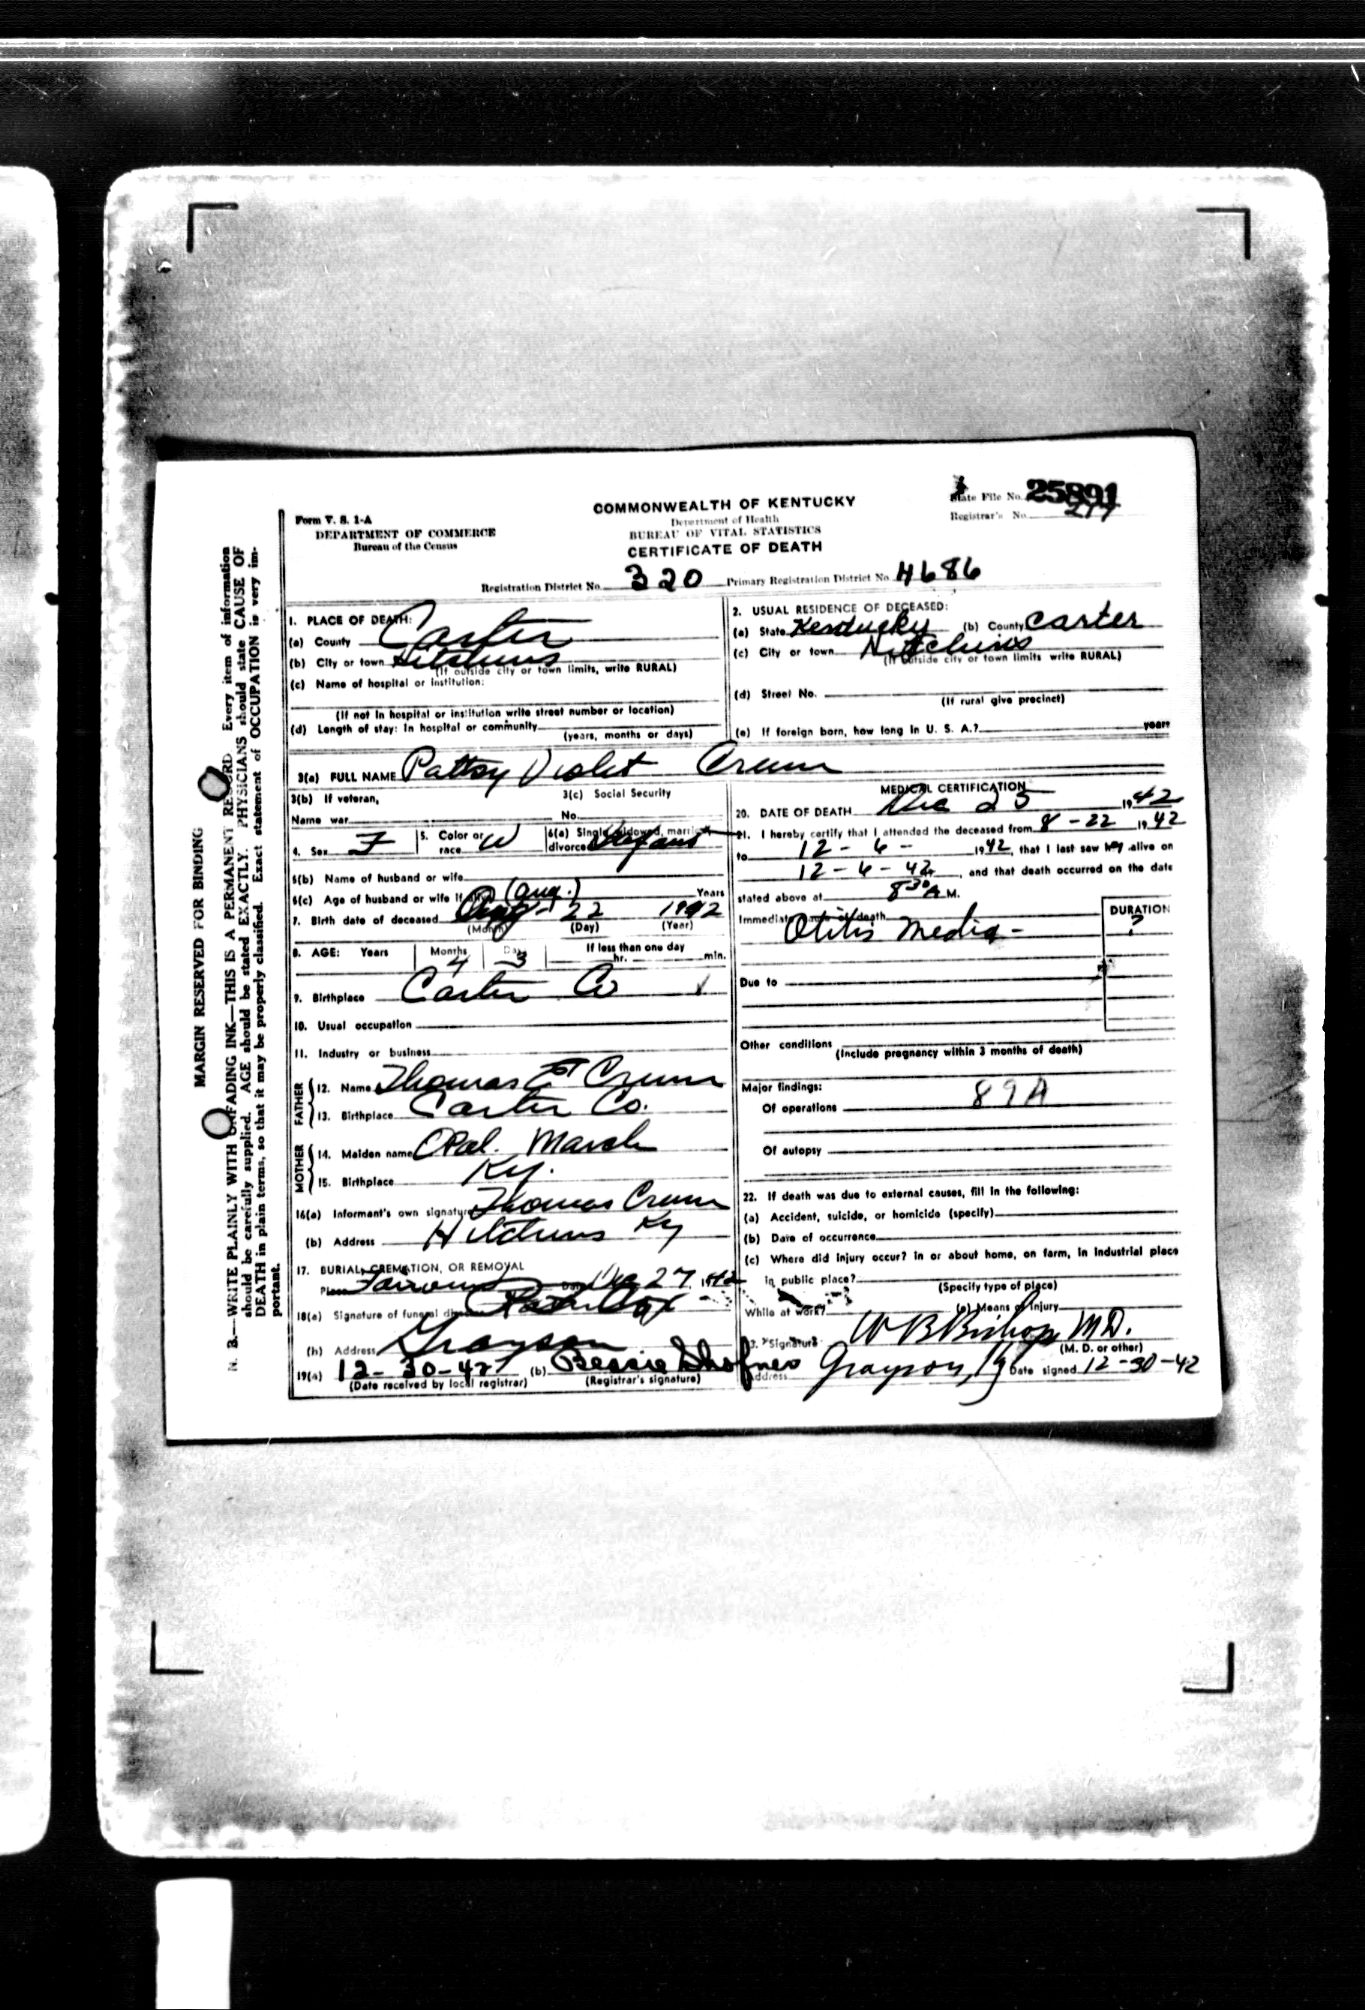 Form V. S. 1-A
DEPARTMENT OF COMMERCE
Bureau of the Census
COMMONWEALTH OF KENTUCKY
Department of Health
BUREAU OF VITAL STATISTICS
CERTIFICATE OF DEATH
State File No. 25891
Registrar's No. 277
Registration District No. 320 Primary Registration District No. 4686
MARGIN RESERVED FOR BINDING
N. B.—WRITE PLAINLY WITH UNFADING INK—THIS IS A PERMANENT RECORD Every item of information
should be carefully supplied. AGE should be stated EXACTLY. PHYSICIANS should state CAUSE OF
DEATH in plain terms, so that it may be properly classified. Exact statement of OCCUPATION is very im-
portant.
1. PLACE OF DEATH:
(a) County Carter
(b) City or town Hitchins
(If outside city or town limits, write RURAL)
(c) Name of hospital or institution:
(If not in hospital or institution write street number or location)
(d) Length of stay: In hospital or community
(years, months or days)
2. USUAL RESIDENCE OF DECEASED:
(a) State Kentucky (b) County Carter
(c) City or town Hitchins
(If outside city or town limits write RURAL)
(d) Street No.
(If rural give precinct)
(e) If foreign born, how long in U. S. A.? years
3(a) FULL NAME Pattsy Violet Crum
3(b) If veteran, 3(c) Social Security
Name war No.
4. Sex F 5. Color or race W 6(a) Single, widowed, married, divorced
6(b) Name of husband or wife
6(c) Age of husband or wife if alive Years
7. Birth date of deceased (Aug.) 22 1942
(Month) (Day) (Year)
8. AGE: Years Months 4 Days 3 If less than one day hr. min.
9. Birthplace Carter Co
10. Usual occupation
11. Industry or business
FATHER
12. Name Thomas E Crum
13. Birthplace Carter Co.
MOTHER
14. Maiden name Opal. Marsh
15. Birthplace Ky.
16(a) Informant's own signature Thomas Crum
(b) Address Hitchins Ky
17. BURIAL, CREMATION, OR REMOVAL
Place Date Dec 27 1942
18(a) Signature of funeral director
(b) Address Grayson
19(a) 12-30-42 (b) Bessie Shofner
(Date received by local registrar) (Registrar's signature)
MEDICAL CERTIFICATION
20. DATE OF DEATH Dec 25 1942
21. I hereby certify that I attended the deceased from 8-22 1942
to 12-6- 1942, that I last saw her alive on
12-6-42, and that death occurred on the date
stated above at 8 30 A M.
Immediate cause of death DURATION
Otitis media - ?
Due to
Other conditions
(Include pregnancy within 3 months of death)
Major findings:
Of operations 89A
Of autopsy
22. If death was due to external causes, fill in the following:
(a) Accident, suicide, or homicide (specify)
(b) Date of occurrence
(c) Where did injury occur? in or about home, on farm, in industrial place
in public place?
(Specify type of place)
While at work? (e) Means of injury
23. Signature W B Bishop M D.
(M. D. or other)
Address Grayson, Ky Date signed 12-30-42